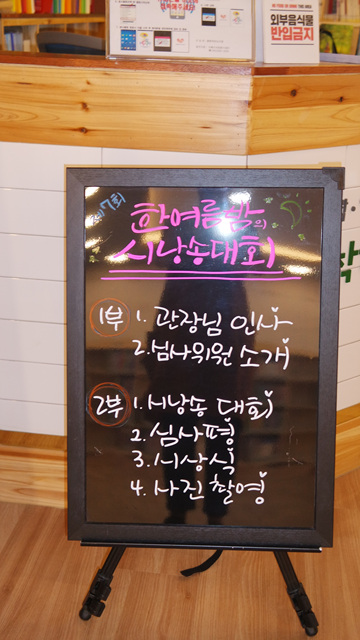 외부음식물
반입금지
제7회
한여름밤의
시낭송대회
1부 1. 관장님 인사
2. 심사위원 소개
2부 1. 시낭송 대회
2. 심사평
3. 시상식
4. 사진촬영